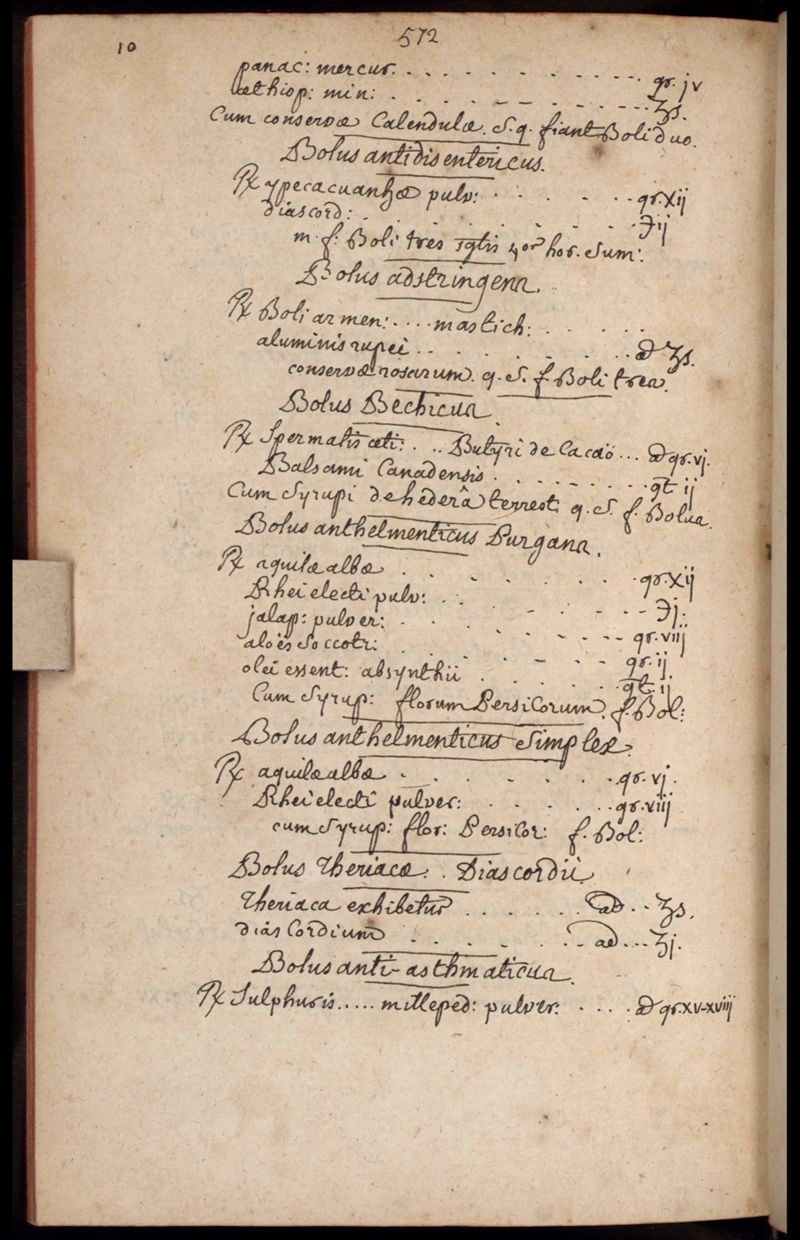 10
572
panac: mercur. . . . . . . . . . . gr. jv
æthiop: min: . . . . . . . . . ʒs.
Cum conservæ Calendulæ. S. q. fiant Boli duo.
Bolus antidisentericus.
℞ ypecacuanhæ pulv: . . . . . . gr. Xij
diascord: . . . . . . . . . ℈ij
m. f. Boli tres sglis 4or hor. Sum:.
Bolus adstringens.
℞ Boli armen: . . . . mastich: . . . . .
aluminis rupei . . . . . . . . . ā ʒs.
conservæ rosarum. q. S. f. Boli tres.
Bolus Bechicus
℞ Spermatis cæti: . . . Butyri de Cacaö . . . ā gr. vj.
Balsami Canadensis . . . . . . . . gt ij
Cum Syrupi de hederâ terrest: q. S. f. Bolus.
Bolus anthelmenticus Purgans.
℞ aquilæ albæ . . . . . . . gr. Xij
Rhei electi pulv: . . . . . . . ℈j.
jalap: pulver: . . . . . . . gr. viij
aloës Soccotr: . . . . . . . gr. ij
olei essent: absynthii . . . . . . gt. ij
Cum Syrup: florum Persicorum. f. Bol:
Bolus anthelmenticus Simplex.
℞ aquilæ albæ . . . . . . . gr. vj.
Rhei electi pulver: . . . . . . gr. viij
cum Syrup: flor: Persicor: f. Bol:
Bolus Theriacæ. . Diascordii
Theriaca exhibetur . . . . . . ad . . ʒs.
diascordium . . . . . . . ad . . . ʒj.
Bolus anti-asthmaticus.
℞ Sulphuris . . . . . milleped: pulver: . . . . ā gr. xv-xviij